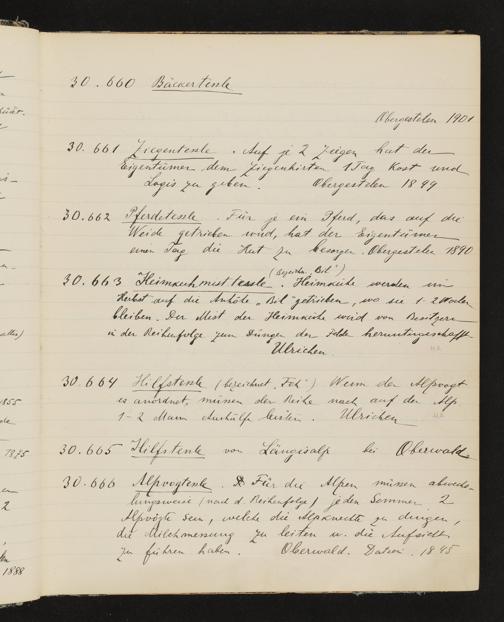 30.660 Bäckertessle
Obergestelen 1901
30.661 Ziegentessle. Auf je 2 Ziegen hat der
Eigentümer dem Ziegenhirten 1 Tag Kost und
Logis zu geben. Obergestelen 1899
30.662 Pferdetessle. Für je ein Pferd, das auf die
Weide getrieben wird, hat der Eigentümer
einen Tag die Hut zu besorgen. Obergestelen 1890
30.663 Heimkuhmisttessle. Heimkühe werden im
Herbst auf die Anhöhe „Bil" getrieben, wo sie 1-2 Wochen
bleiben. Der Mist der Heimkühe wird von Besitzern
in der Reihenfolge zum Düngen der heruntergeschafft
Ulrichen.
30.664 Hilfstessle (bezeichnet) Wenn der Alpvogt
es anordnet, müssen der Reihe nach auf der Alp
1-2 Mann Aushülfe leisten. Ulrichen
30.665 Hilfstessle von Längisalp bei Oberwald
30.666 Alpvogtessle. Für die Alpen müssen abwechs-
lungsweise (nach d. Reihenfolge) jeden Sommer 2
Alpvögte sein, welche die Alpknechte zu dingen,
die Milchmessung zu leiten u. die Aufsicht
zu führen haben. Oberwald. 1895
1855
1875
2
1888